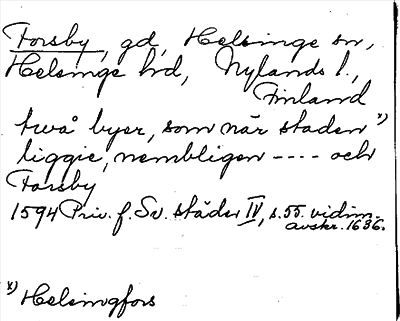 Forsby, gd, Helsinge sn,
Helsinge hd, Nylands l.,
Finland
twå byer, som när staden x)
liggie, nembligen ---- och
Forsby
1594 Priv. f. Sv. städer IV, s. 55. vidim.
avskr. 1636.
x) Helsingfors